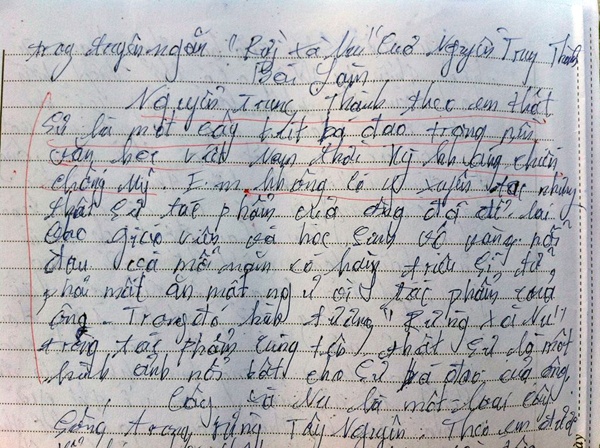 trong truyện ngắn "Rừng xà Nu" Của Nguyễn Trung Thành
Bài Làm
Nguyễn Trung Thành theo em thật
sự là một cây bút bá đạo trong nền
văn học việt Nam thời kỳ kháng chiến
chống Mỹ. Em không có ý xuyên tạc nhưng
thật sự tác phẩm của ông đã để lại
các giáo viên và học sinh vô vàng nỗi
đau cả mỗi năm có hàng triệu sĩ tử
phải mất ăn mất ngủ vì tác phẩm của
ông. Trong đó hình tượng "Rừng xà Nu"
trong tác phẩm cùng tên thật sự là một
hình ảnh nổi bật cho sự bá đạo của ông.
Cây xà Nu là một loại cây
sống trong rừng Tây Nguyên Theo em được